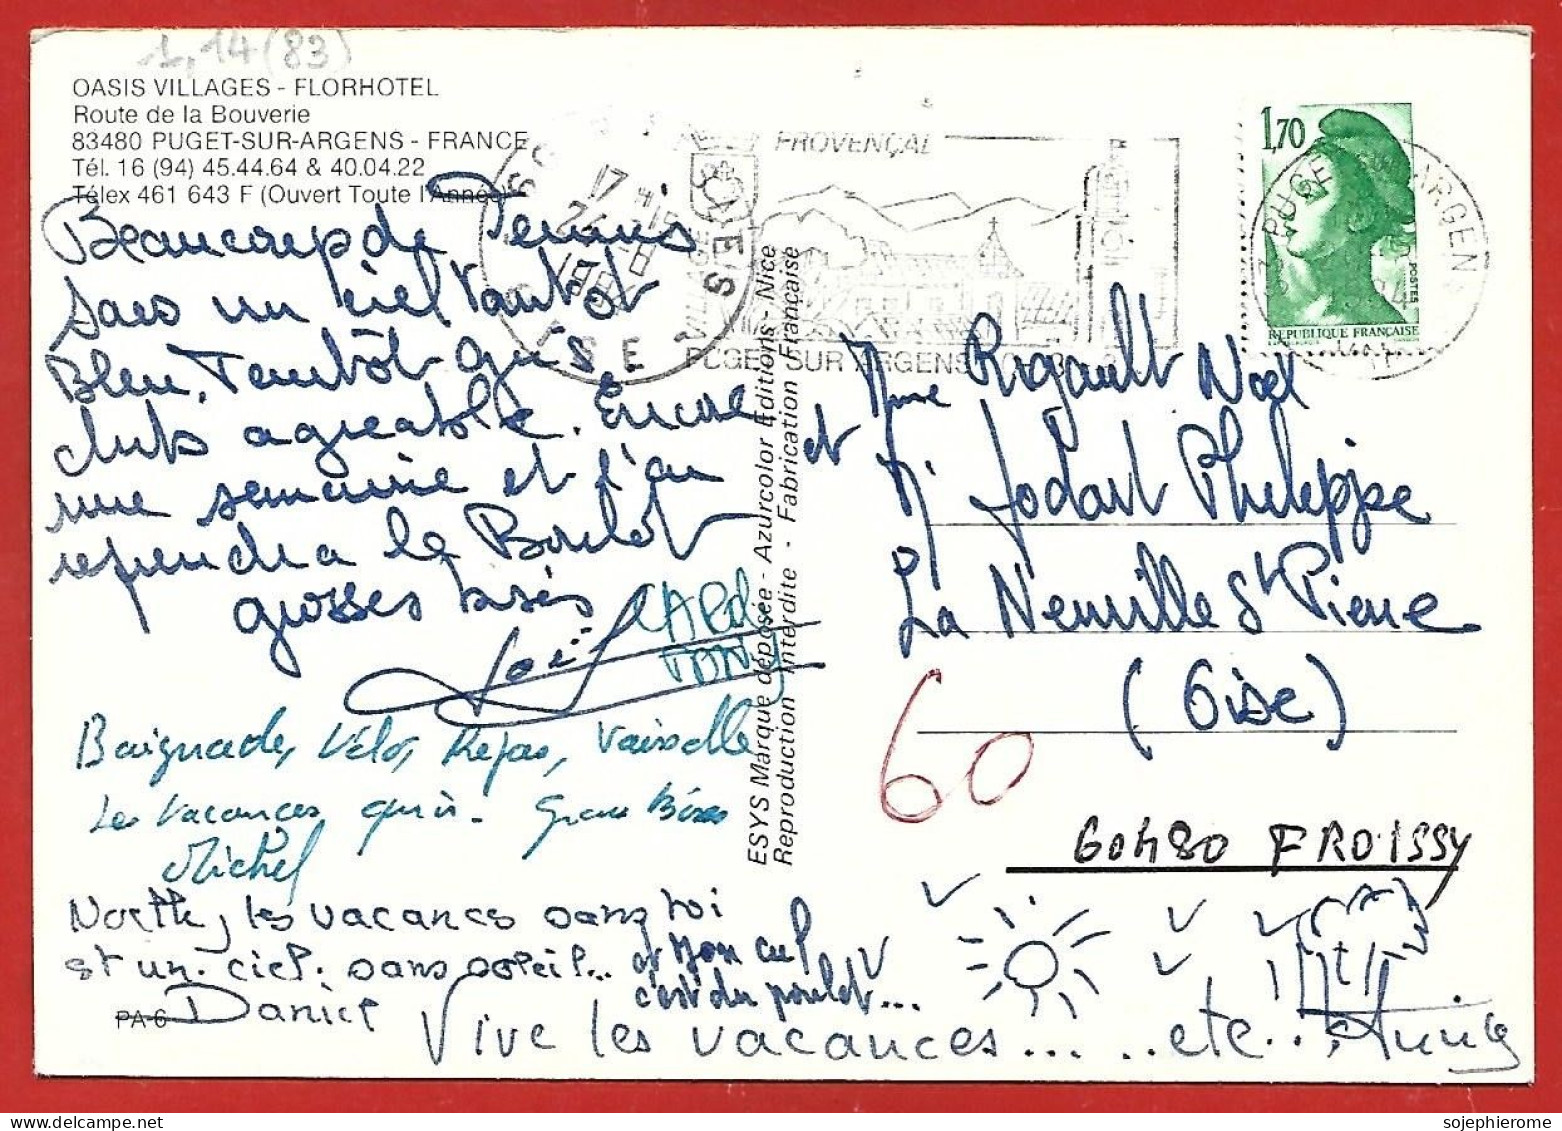 1,14 (83)
OASIS VILLAGES - FLORHOTEL
Route de la Bouverie
83480 PUGET-SUR-ARGENS - FRANCE
Tél. 16 (94) 45.44.64 & 40.04.22
Télex 461 643 F (Ouvert Toute l'Année)
Beaucoup de Tennis
sans un ciel tantôt
Bleu, Tantôt Gris
club agreable. Encore
une semaine et l'on
reprendra le Boulot
grosses bises
Joël
CAROL
TONY
Baignade, Vélo, Repas, Vaisselle
Les Vacances quoi - Gros Bises
Michel
les vacances sans toi
st un ciel sans soleil...
Daniel
et Mon cul
c'est du poulet...
Vive les vacances... ..etc...
PA-6
ESYS Marque déposée - Azurcolor Editions - Nice
Reproduction Interdite - Fabrication Française
PROVENÇAL
PUGET SUR ARGENS
17 H 15
1984
OISE
1,70
POSTES
REPUBLIQUE FRANÇAISE
PUGET SUR ARGENS
Mme Rigault Noël
et Mr Jodart Philippe
La Neuville St Pierre
(Oise)
60
60480 FROISSY
sojephierome